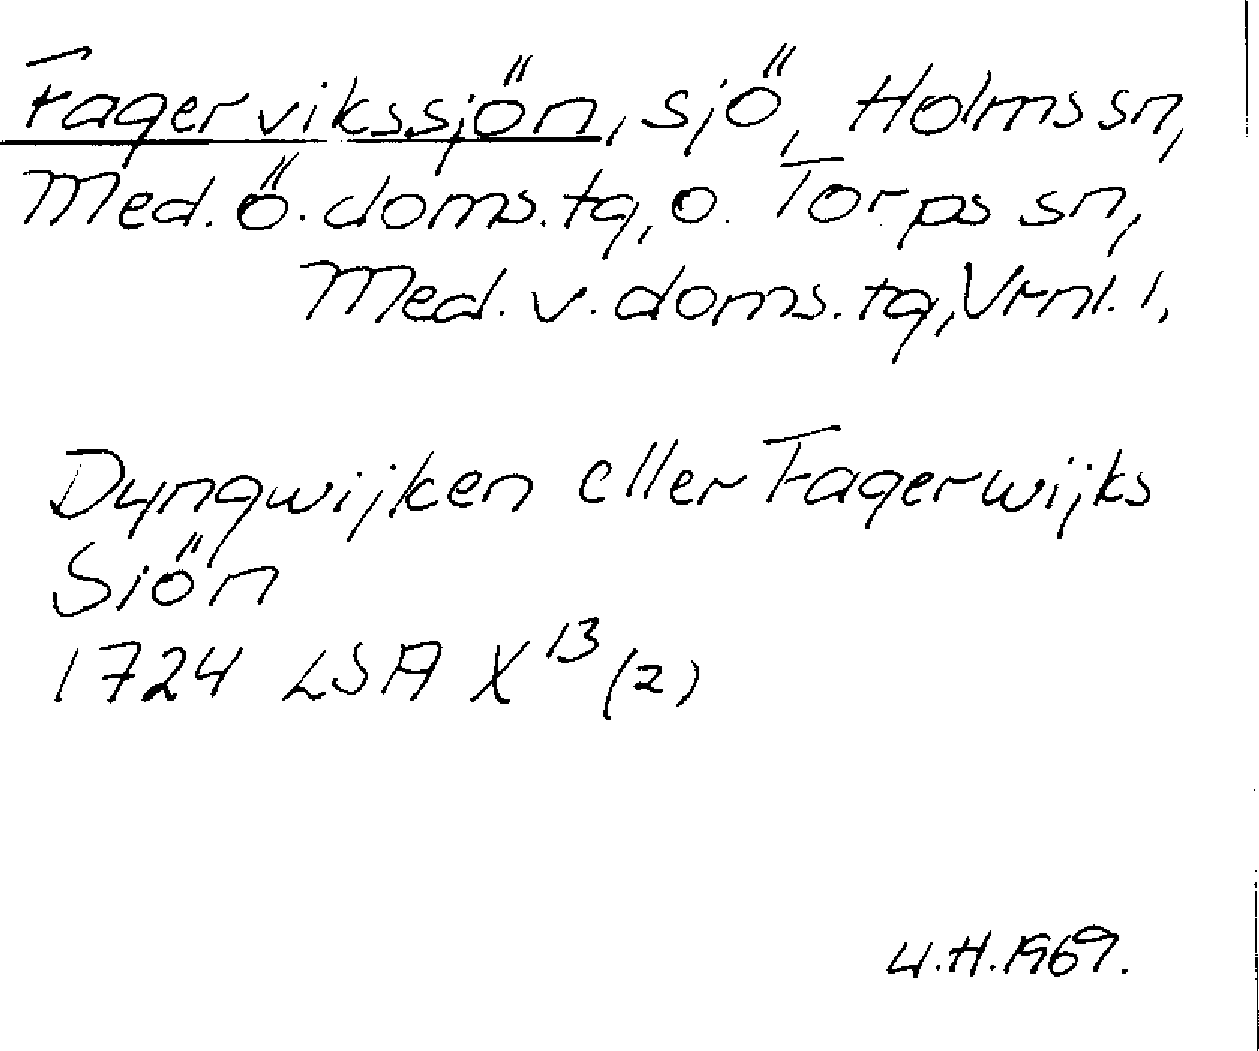 Fagervikssjön, sjö, Holms sn,
Med. ö. doms. tg, o. Torps sn,
Med. v. doms. tg, Vrnl. l,
Dyngwijken eller Fagerwijks
Siön
1724 LSA X 13 (2)
U.H. 1969.